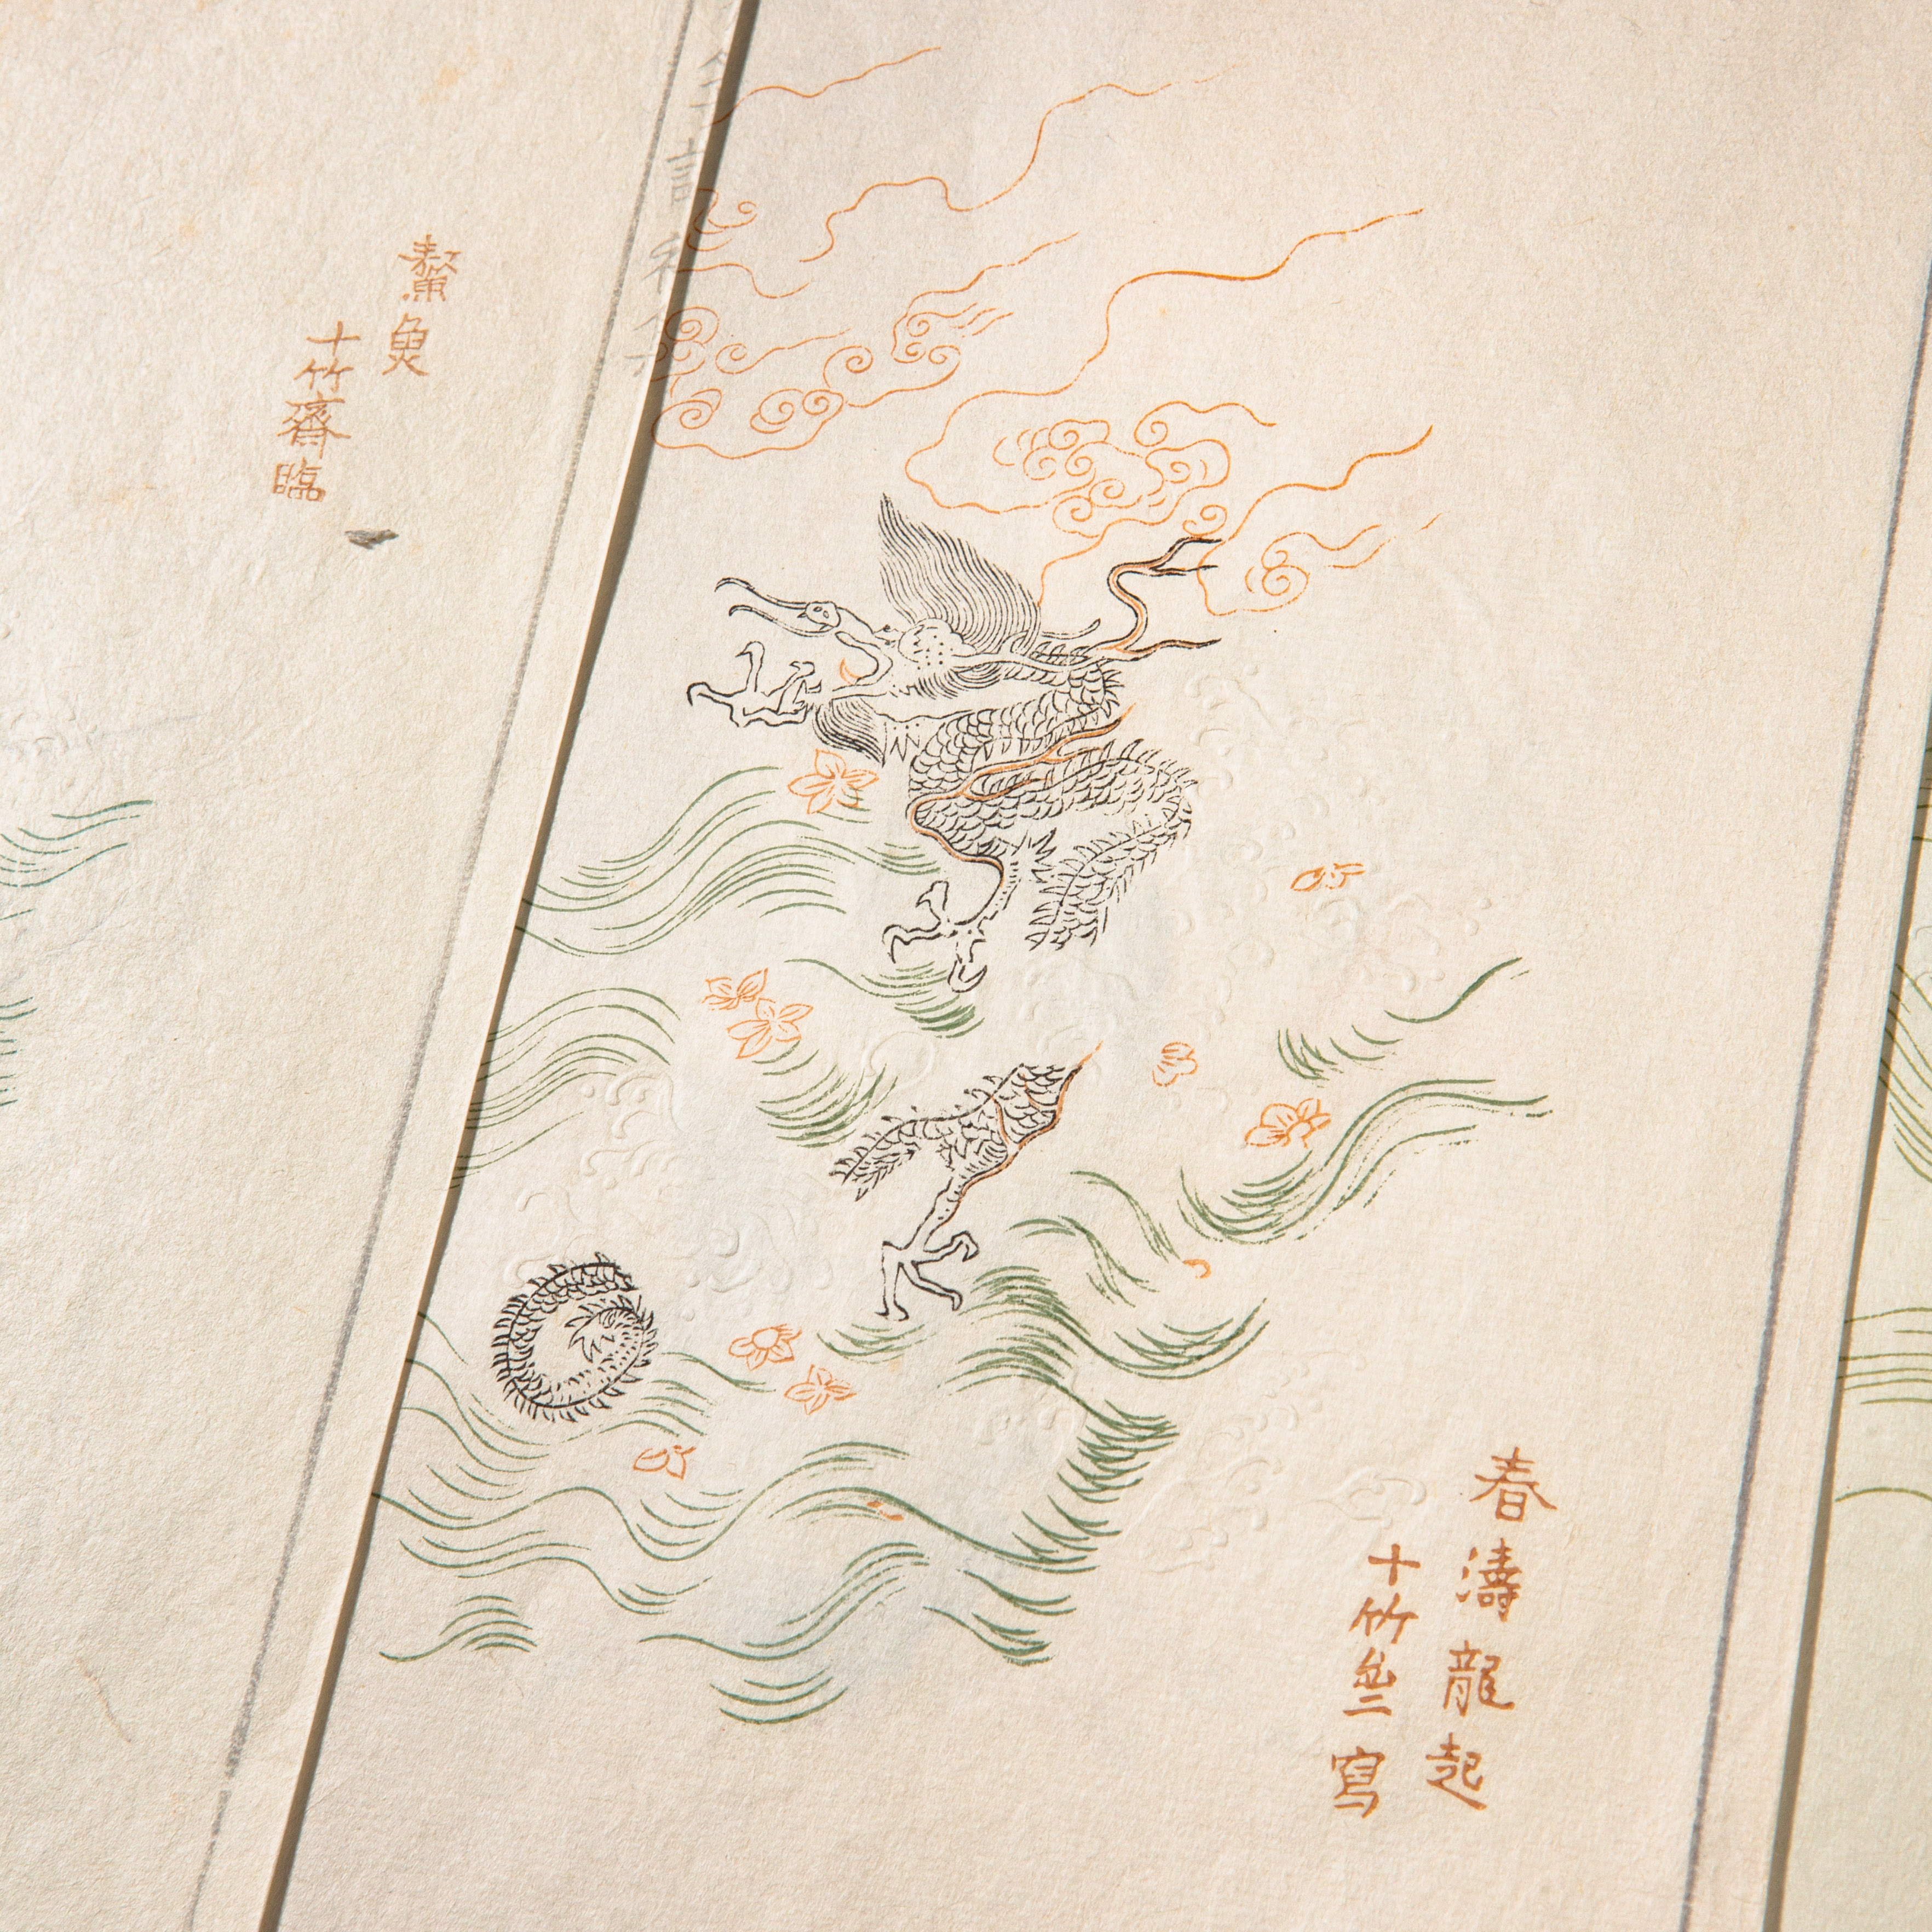 春濤龍起
十竹亝寫
鰲魚
十竹齋臨